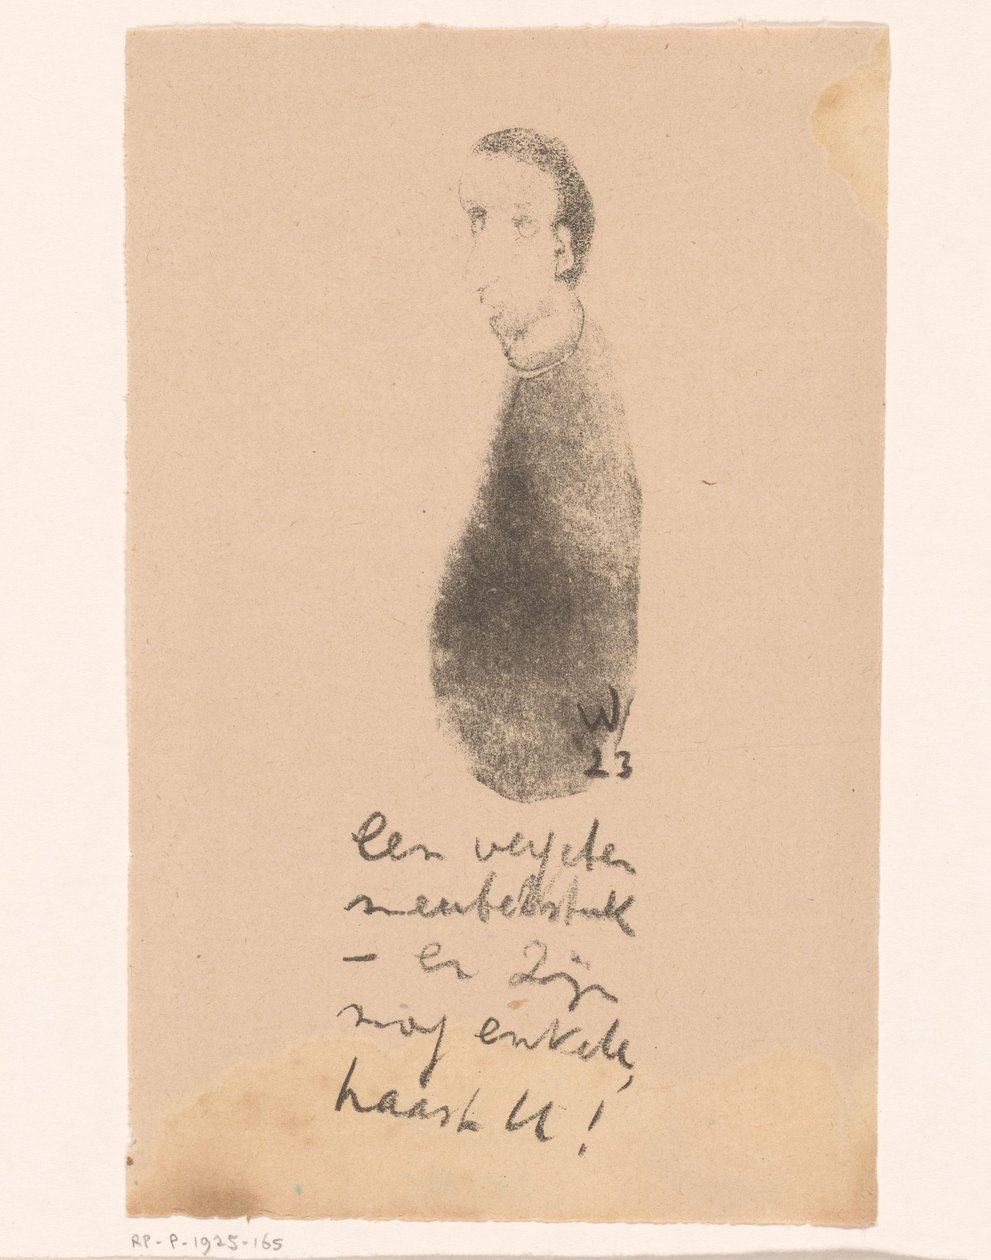 W
23
Een vergeten
meubelstuk
– er zijn
nog enkele,
haast U!
RP-P-1925-165